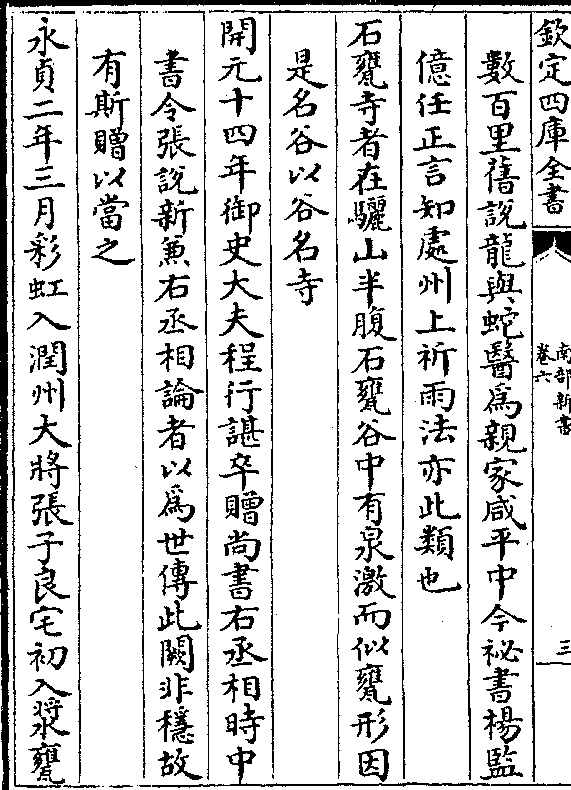 欽定四庫全書
南部新書
卷六
三
數百里舊說龍與蛇醫為親家咸平中今祕書楊監
億任正言知處州上祈雨法亦此類也
石甕寺者在驪山半腹石甕谷中有泉激而似甕形因
是名谷以谷名寺
開元十四年御史大夫程行諶卒贈尚書右丞相時中
書令張說新兼右丞相論者以為世傳此闕非穩故
有斯贈以當之
永貞二年三月彩虹入潤州大將張子良宅初入漿甕